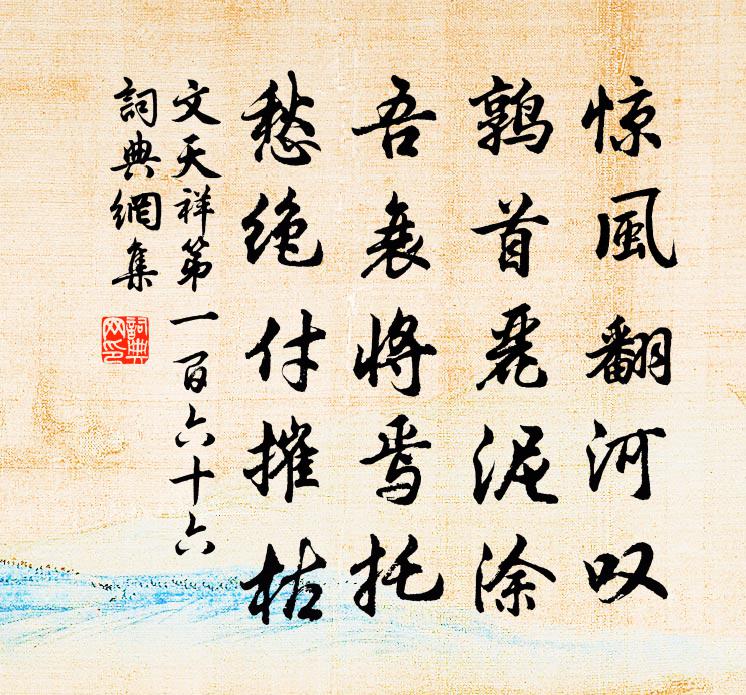 惊風翻河叹
鶉首麗泥涂
吾衰将焉托
愁绝付摧枯
文天祥第一百六十六
詞典網集
詞典网印